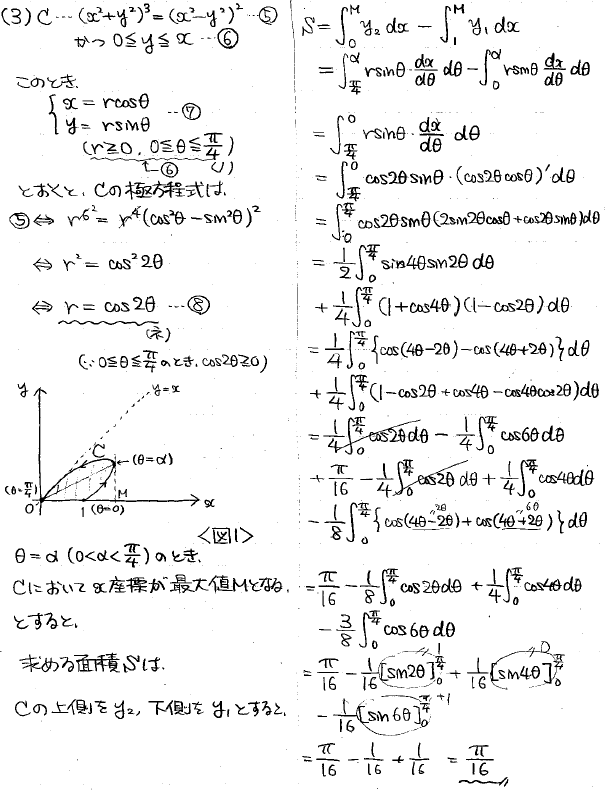 (3) C … (x²+y²)³ = (x²-y²)² … ⑤
かつ 0≦y≦x … ⑥
このとき、
{ x = rcosθ
y = rsinθ … ⑦
(r≧0, 0≦θ≦π/4)
⑥ (ハ)
とおくと、Cの極方程式は、
⑤ ⇔ r⁶² = r⁴(cos²θ - sin²θ)²
⇔ r² = cos²2θ
⇔ r = cos2θ … ⑧
(ネ)
(∵ 0≦θ≦π/4 のとき、cos2θ≧0)
y
y=x
C
←(θ=α)
(θ=π/4)
O 1 (θ=0) M x
<図1>
θ=α (0<α<π/4) のとき、
Cにおいてx座標が最大値Mとなる、
とすると、
求める面積Sは、
Cの上側を y₂, 下側を y₁ とすると、
S = ∫₀^M y₂ dx - ∫₁^M y₁ dx
= ∫_{π/4}^α rsinθ・dx/dθ dθ - ∫₀^α rsinθ dx/dθ dθ
= ∫_{π/4}^0 rsinθ・dx/dθ dθ
= ∫_{π/4}^0 cos2θsinθ・(cos2θcosθ)' dθ
= ∫₀^{π/4} cos2θsinθ(2sin2θcosθ+cos2θsinθ)dθ
= 1/2 ∫₀^{π/4} sin4θsin2θ dθ
+ 1/4 ∫₀^{π/4} (1+cos4θ)(1-cos2θ)dθ
= 1/4 ∫₀^{π/4} {cos(4θ-2θ) - cos(4θ+2θ)} dθ
+ 1/4 ∫₀^{π/4} (1-cos2θ+cos4θ-cos4θcos2θ)dθ
= 1/4 ∫₀^{π/4} cos2θdθ - 1/4 ∫₀^{π/4} cos6θdθ
+ π/16 - 1/4 ∫₀^{π/4} cos2θ dθ + 1/4 ∫₀^{π/4} cos4θdθ
- 1/8 ∫₀^{π/4} {cos(4θ-2θ) + cos(4θ+2θ)} dθ
2θ 6θ
= π/16 - 1/8 ∫₀^{π/4} cos2θdθ + 1/4 ∫₀^{π/4} cos4θdθ
- 3/8 ∫₀^{π/4} cos6θdθ
1 0
= π/16 - 1/16 [sin2θ]₀^{π/4} + 1/16 [sin4θ]₀^{π/4}
- 1/16 [sin6θ]₀^{π/4} +1
= π/16 - 1/16 + 1/16 = π/16